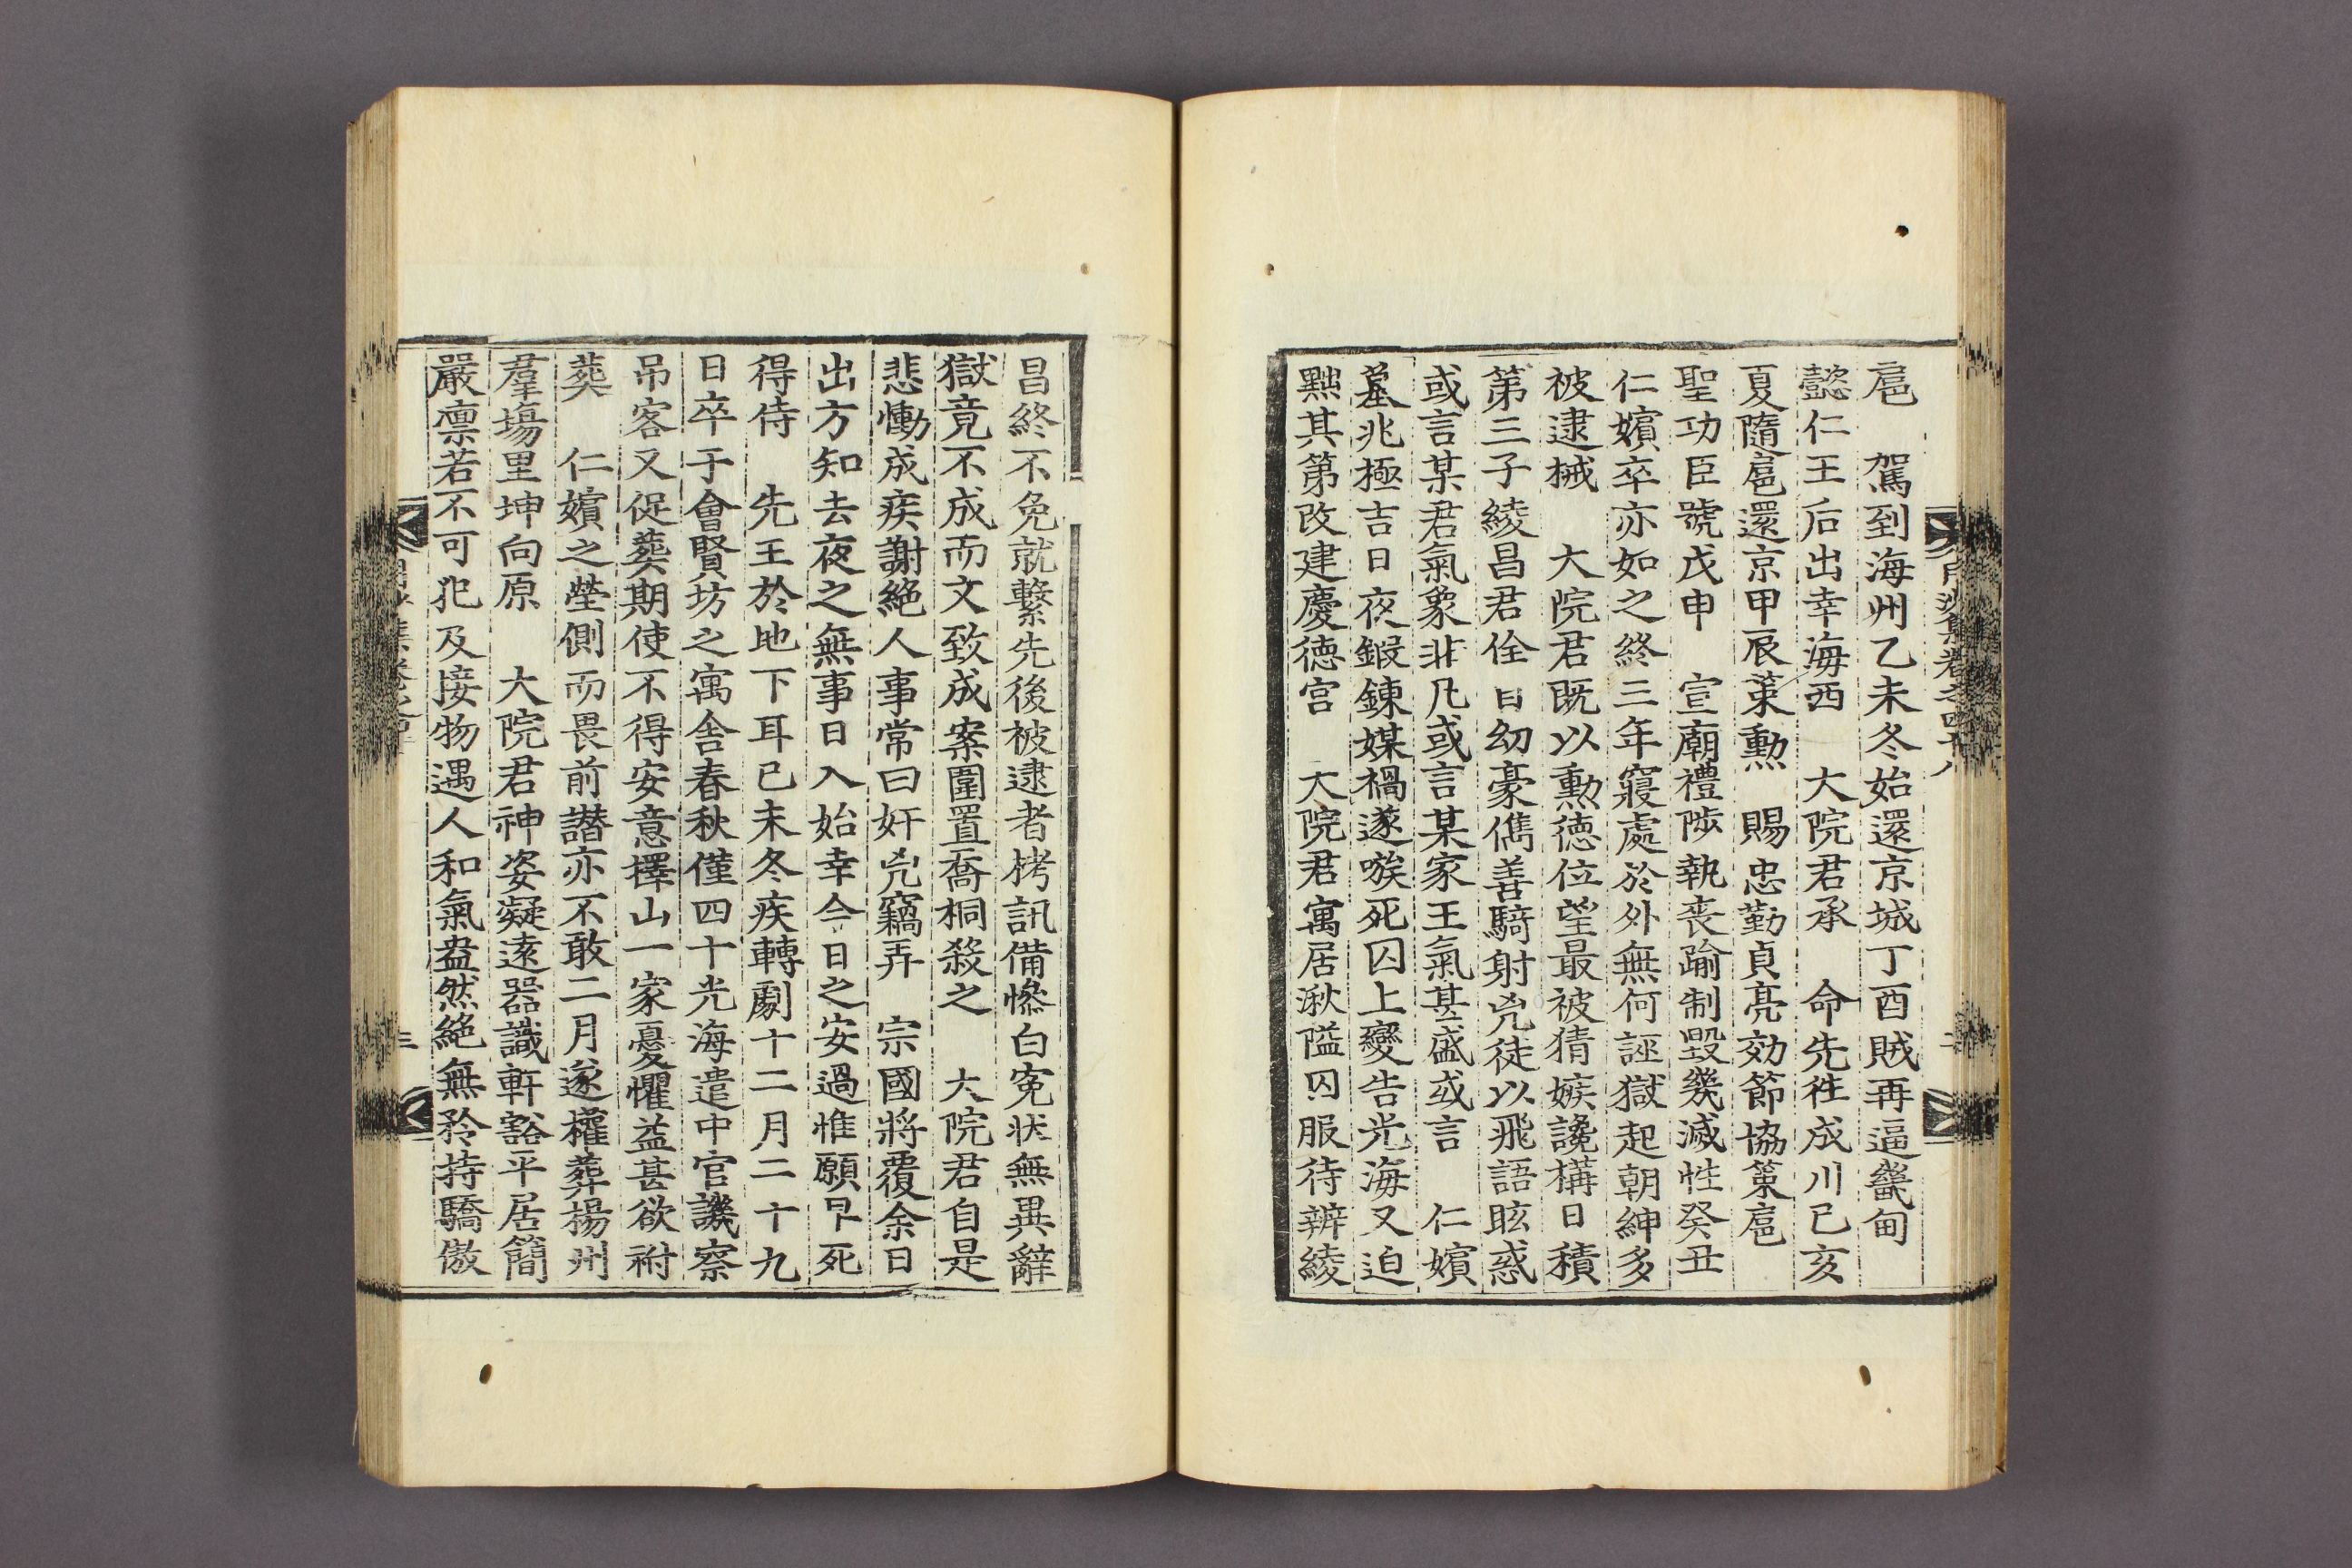 扈　駕到海州乙未冬始還京城丁酉賊再逼畿甸
懿仁王后出幸海西　大院君承　命先徃成川己亥
夏隨扈還京甲辰策勳　賜忠勤貞亮効節協策扈
聖功臣號戊申　宣廟禮陟執喪踰制毁幾滅性癸丑
仁嬪卒亦如之終三年寢處於外無何誣獄起朝紳多
被逮械　大院君既以勳德位望最被猜嫉讒構日積
第三子綾昌君佺自幼豪儁善騎射兇徒以飛語眩惑
或言某君氣象非凡或言某家王氣甚盛或言　仁嬪
墓兆極吉日夜鍛鍊媒禍遂嗾死囚上變告光海又迫
黜其第改建慶德宮　大院君寓居湫隘囚服待辨綾
昌終不免就繫先後被逮者栲訊備慘白寃狀無異辭
獄竟不成而文致成案圍置喬桐殺之　大院君自是
悲慟成疾謝絶人事常曰奸兇竊弄　宗國將覆余日
出方知去夜之無事日入始幸今日之安過惟願早死
得侍　先王於地下耳己未冬疾轉劇十二月二十九
日卒于會賢坊之寓舍春秋僅四十光海遣中官譏察
吊客又促葬期使不得安意擇山一家憂懼益甚欲祔
葬　仁嬪之塋側而畏前讃亦不敢二月遂權葬楊州
羣塲里坤向原　大院君神姿凝遠器識軒豁平居簡
嚴凛若不可犯及接物遇人和氣盎然絶無矜持驕傲